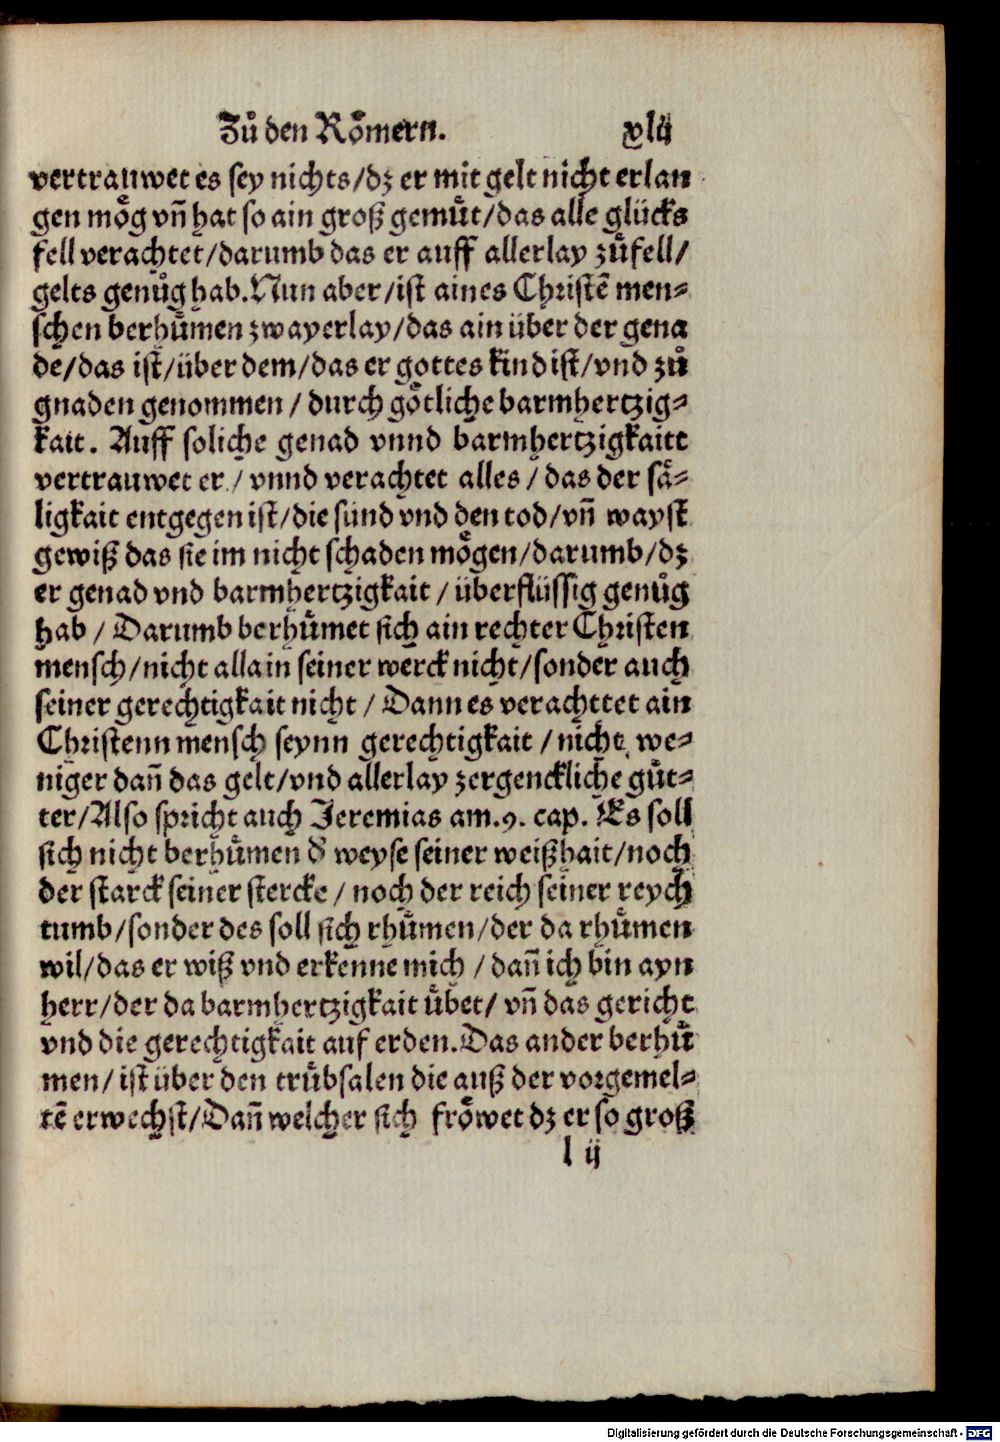 Zuͦ den Roͤmern. xlij
vertrauwet es sey nichts/dz er mit gelt nicht erlan
gen moͤg vñ hat so ain groß gemuͤt/das alle glücks
fell verachtet/darumb das er auff allerlay zuͦfell/
gelts genuͦg hab. Nun aber/ist aines Christẽ men⸗
schen berhuͤmen zwayerlay/das ain über der gena
de/das ist/über dem/das er gottes kind ist/vnd zuͦ
gnaden genommen / durch goͤtliche barmhertzig⸗
kait. Auff soliche genad vnnd barmhertzigkaitt
vertrauwet er / vnnd verachtet alles / das der saͤ⸗
ligkait entgegen ist/die sünd vnd den tod/vñ wayst
gewiß das sie im nicht schaden moͤgen/darumb/dz
er genad vnd barmhertzigkait / überflüssig genuͦg
hab / Darumb berhuͤmet sich ain rechter Christen
mensch/nicht allain seiner werck nicht/sonder auch
seiner gerechtigkait nicht / Dann es verachttet ain
Christenn mensch seynn gerechtigkait / nicht we⸗
niger dañ das gelt/vnd allerlay zergenckliche guͤt⸗
ter/Also spricht auch Jeremias am.9. cap. Es soll
sich nicht berhuͤmen d̕ weyse seiner weißhait/noch
der starck seiner stercke / noch der reich seiner reych
tumb/sonder des soll sich rhuͤmen/der da rhuͤmen
wil/das er wiß vnd erkenne mich / dañ ich bin ayn
herr/der da barmhertzigkait uͤbet/ vñ das gericht
vnd die gerechtigkait auf erden. Das ander berhuͤ
men/ist über den truͤbsalen die auß der vorgemel⸗
tẽ erwechst/Dañ welcher sich froͤwet dz er so groß
l ij
Digitalisierung gefördert durch die Deutsche Forschungsgemeinschaft - DFG